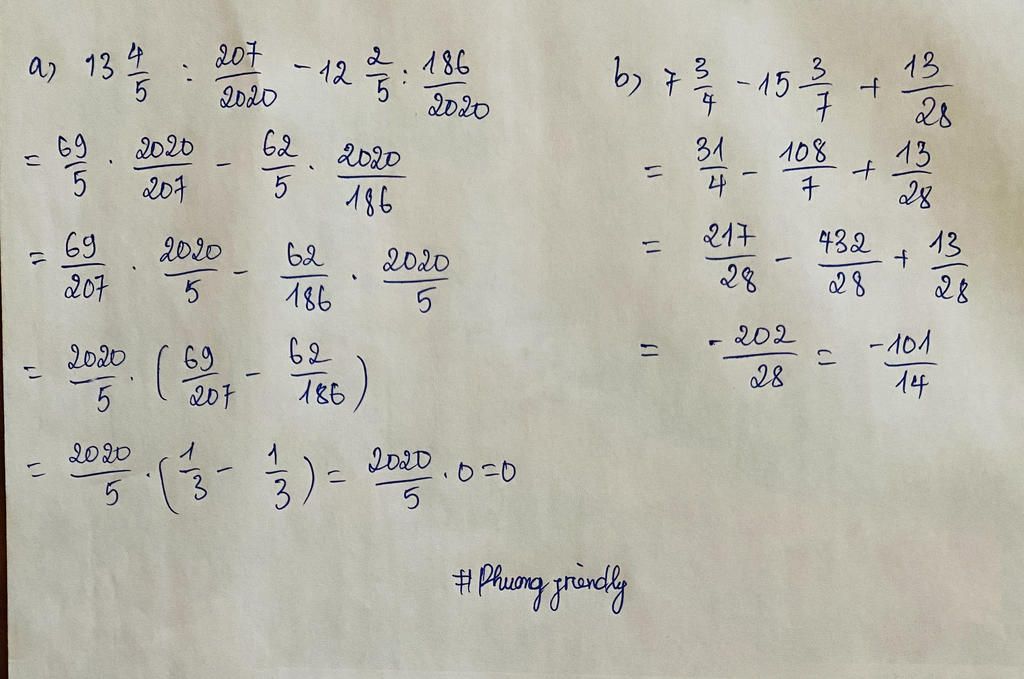 a) 13 4/5 : 207/2020 - 12 2/5 : 186/2020
= 69/5 . 2020/207 - 62/5 . 2020/186
= 69/207 . 2020/5 - 62/186 . 2020/5
= 2020/5 . (69/207 - 62/186)
= 2020/5 . (1/3 - 1/3) = 2020/5 . 0 = 0
b) 7 3/4 - 15 3/7 + 13/28
= 31/4 - 108/7 + 13/28
= 217/28 - 432/28 + 13/28
= -202/28 = -101/14
#Phuong friendly